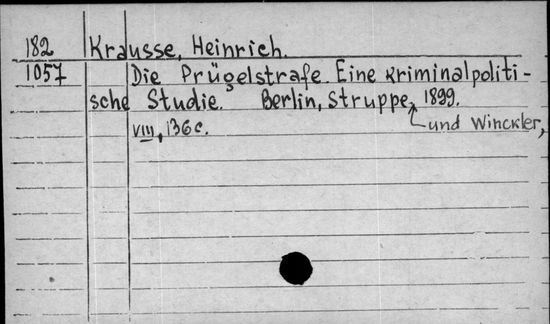 182 Krausse, Heinrich.
1057 Die Prügelstrafe. Eine kriminalpoliti-
sche Studie. Berlin, Struppe, 1899.
und Winckler,
VIII, 136 c.